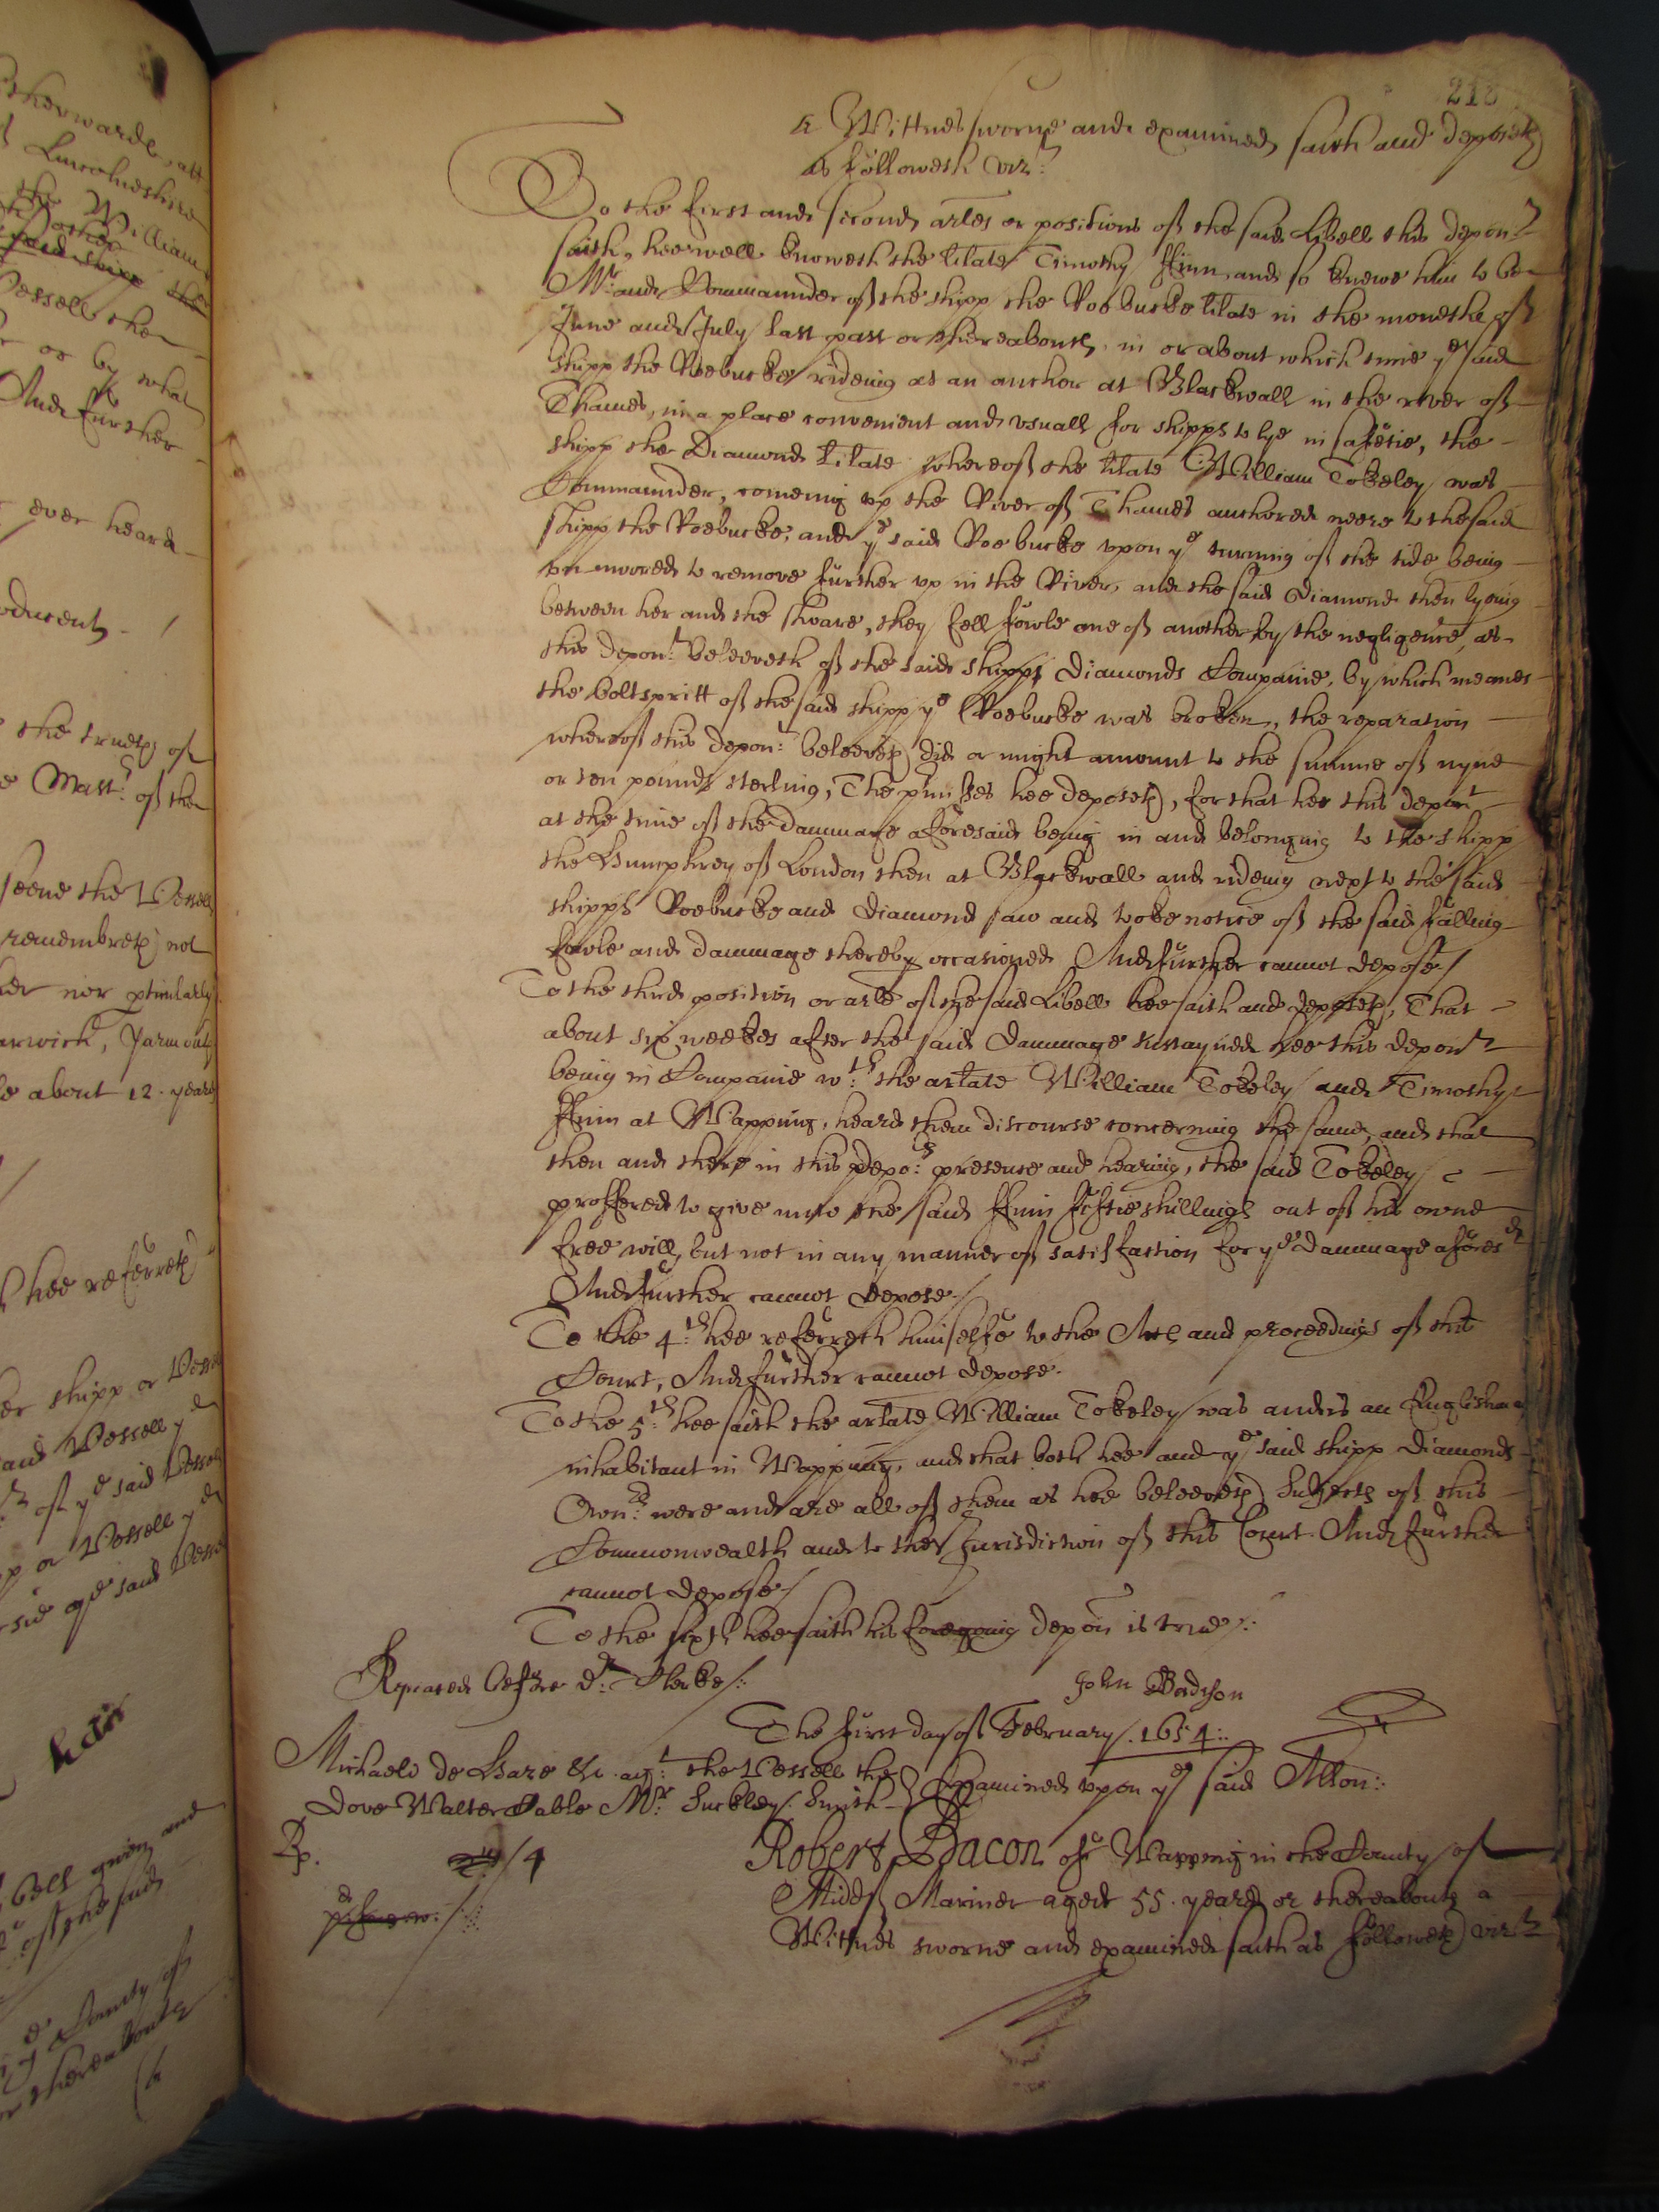 218
a Wittnes sworne and examined saith and deposeth
as followeth vizt:
To the first and second arles or positions of the said Libell this depont
saith, hee well knoweth the arlate Timothy ffinn and so knewe him to bee
Mr. and Commaunder of the shipp the Roebucke arlate in the moneths of
June and July last past or thereabouts, in or about which time ye said
shipp the Roebucke rideing at an anchor at Blackwall in the river of
Thames, in a place convenient and usuall for shipps to lye in safetie, the
shipp the Diamond arlate whereof the arlate William Tokeley was
Commaunder, comeing up the River of Thames anchored neere to the said
shipp the Roebucke, and ye said Roebucke upon ye turning of the tide being
un-moored to remove further up in the River, and the said Diamond then lyeing
between her and the shoare, they fell fowle one of another by the negligence, as
this depont: beleeveth of the said shipps Diamonds Companie, by which meanes
the boltspritt of the said shipp ye Roebucke was broken, the reparation
whereof this depont: beleeveth did or might amount to the summe of nyne
or ten pounds sterling, The premisses hee deposeth, for that hee this depont
at the time of the dammage aforesaid being in and belonging to the shipp
the Humphrey of London then at Blackwall and rideing next to the said
shipps Roebucke and Diamond saw and tooke notice of the said falling
fowle and dammage thereby occasioned And further cannot depose/
To the third position or arle of the said Libell hee saith and deposeth, That
about six weekes after the said dammage sustayned hee this depont
being in Companie wth: the arlate William Tokeley and Timothy
ffinn at Wapping, heard them discourse concerning the same, and that
then and there in this depots: presence and hearing, the said Tokeley
proffered to give unto the said ffinn fiftie shillings out of his owne
free will, but not in any manner of satisfaction for ye dammage aforesd
And further cannot depose/
To the 4th: hee referreth himselfe to the Acts and proceedings of this
Court, And further cannot depose.
To the 5th: hee saith the arlate William Tokeley was and is an Englishman
inhabitant in Wapping, and that both hee and ye said shipp Diamonds
Ownrs: were and are all of them as hee beleeveth Subjects of this
Commonwealth and to the Jurisdiction of this Court. And further
cannot depose/
To the sixth hee saith his foregoing depon is true/:
Repeated before dr: Clerke/:
John Badison
The first day of February. 1654::
Michaele de Haze &c. agt: the Vessell the
Dove Walter Cable Mr. Suckley. Smith
Examined upon ye said Allon:
Rp.
/4
Robert Bacon of Wapping in the County of
Middx Mariner aged 55. yeares or thereabouts a
Wittnes sworne and examined saith as followeth vizt